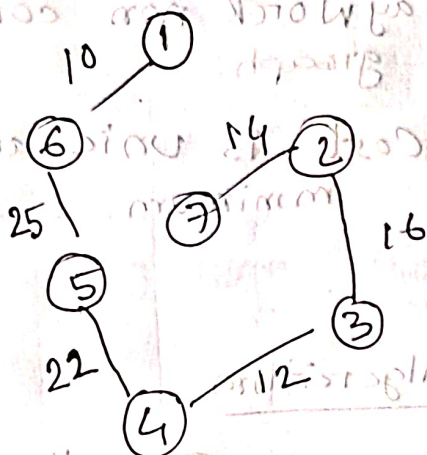 10
1
6
14
2
7
25
16
5
3
22
12
4